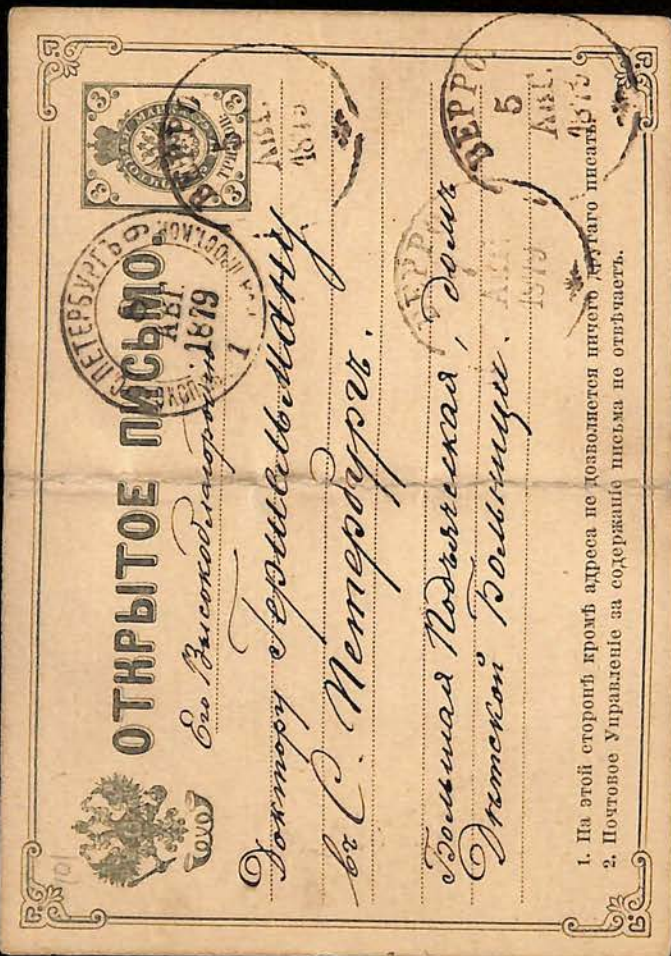 ОТКРЫТОЕ ПИСЬМО.
Его Высокоблагородию
Доктору Гершельману
въ С. Петербургъ.
Большая Подъяческая, домъ
Дѣтской Больницы.
1. На этой сторонѣ кромѣ адреса не дозволяется ничего другаго писать.
2. Почтовое Управленіе за содержаніе письма не отвѣчаетъ.
3 3
3 3
ТРИ КОП.
ВЕРРО
5
АВГ.
1879
С. ПЕТЕРБУРГЪ
6
АВГ.
1879
1
ВЕРРО
5
АВГ.
1879
ВЕРРО
АВГ.
1879